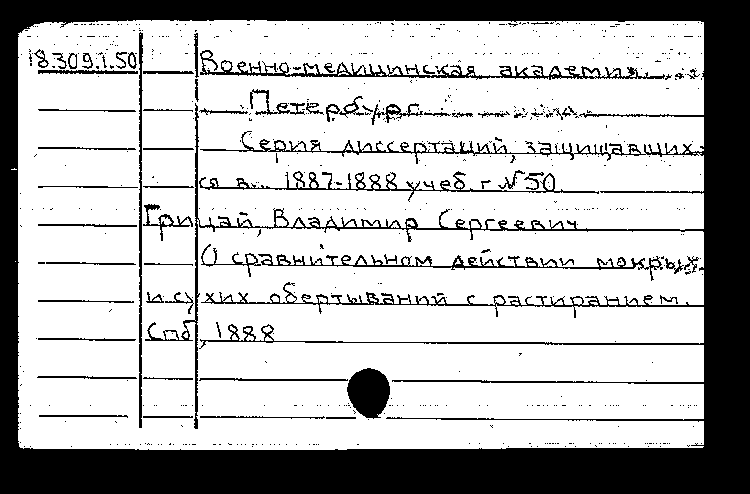 18.309.1.50 Военно-медицинская академия.
Петербург
Серия диссертаций, защищавших-
ся в... 1887-1888 учеб. г № 50
Грицай, Владимир Сергеевич.
О сравнительном действии мокрых
и сухих обертываний с растиранием.
Спб, 1888